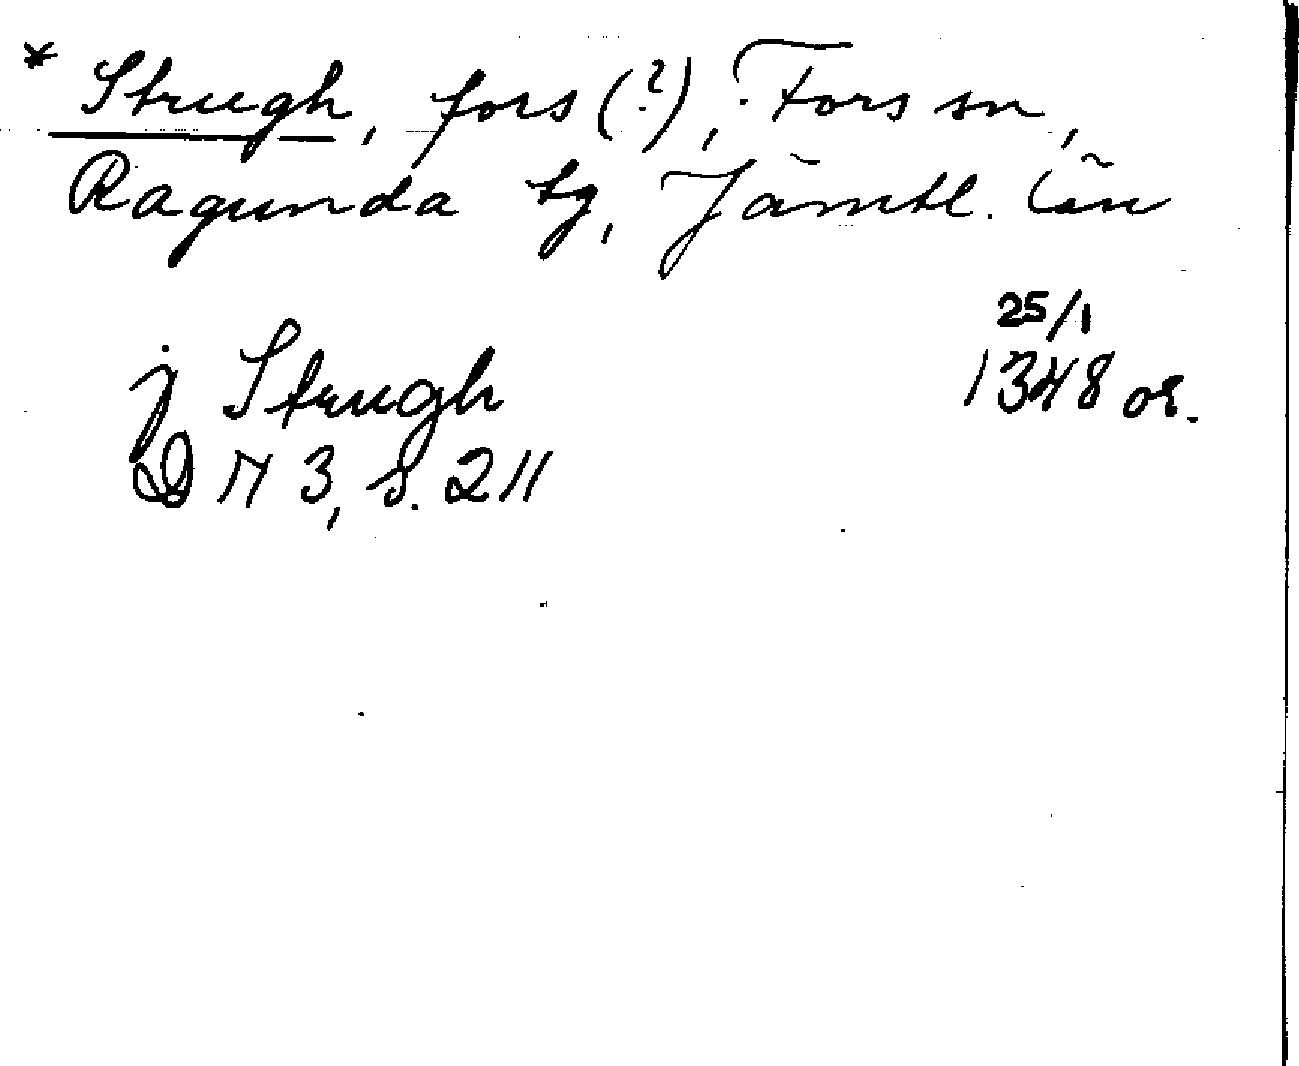 * Strugh, fors (?), Fors sn,
Ragunda tg, Jämtl. län
25/1
j Strugh 1348 or.
DN 3, s. 211